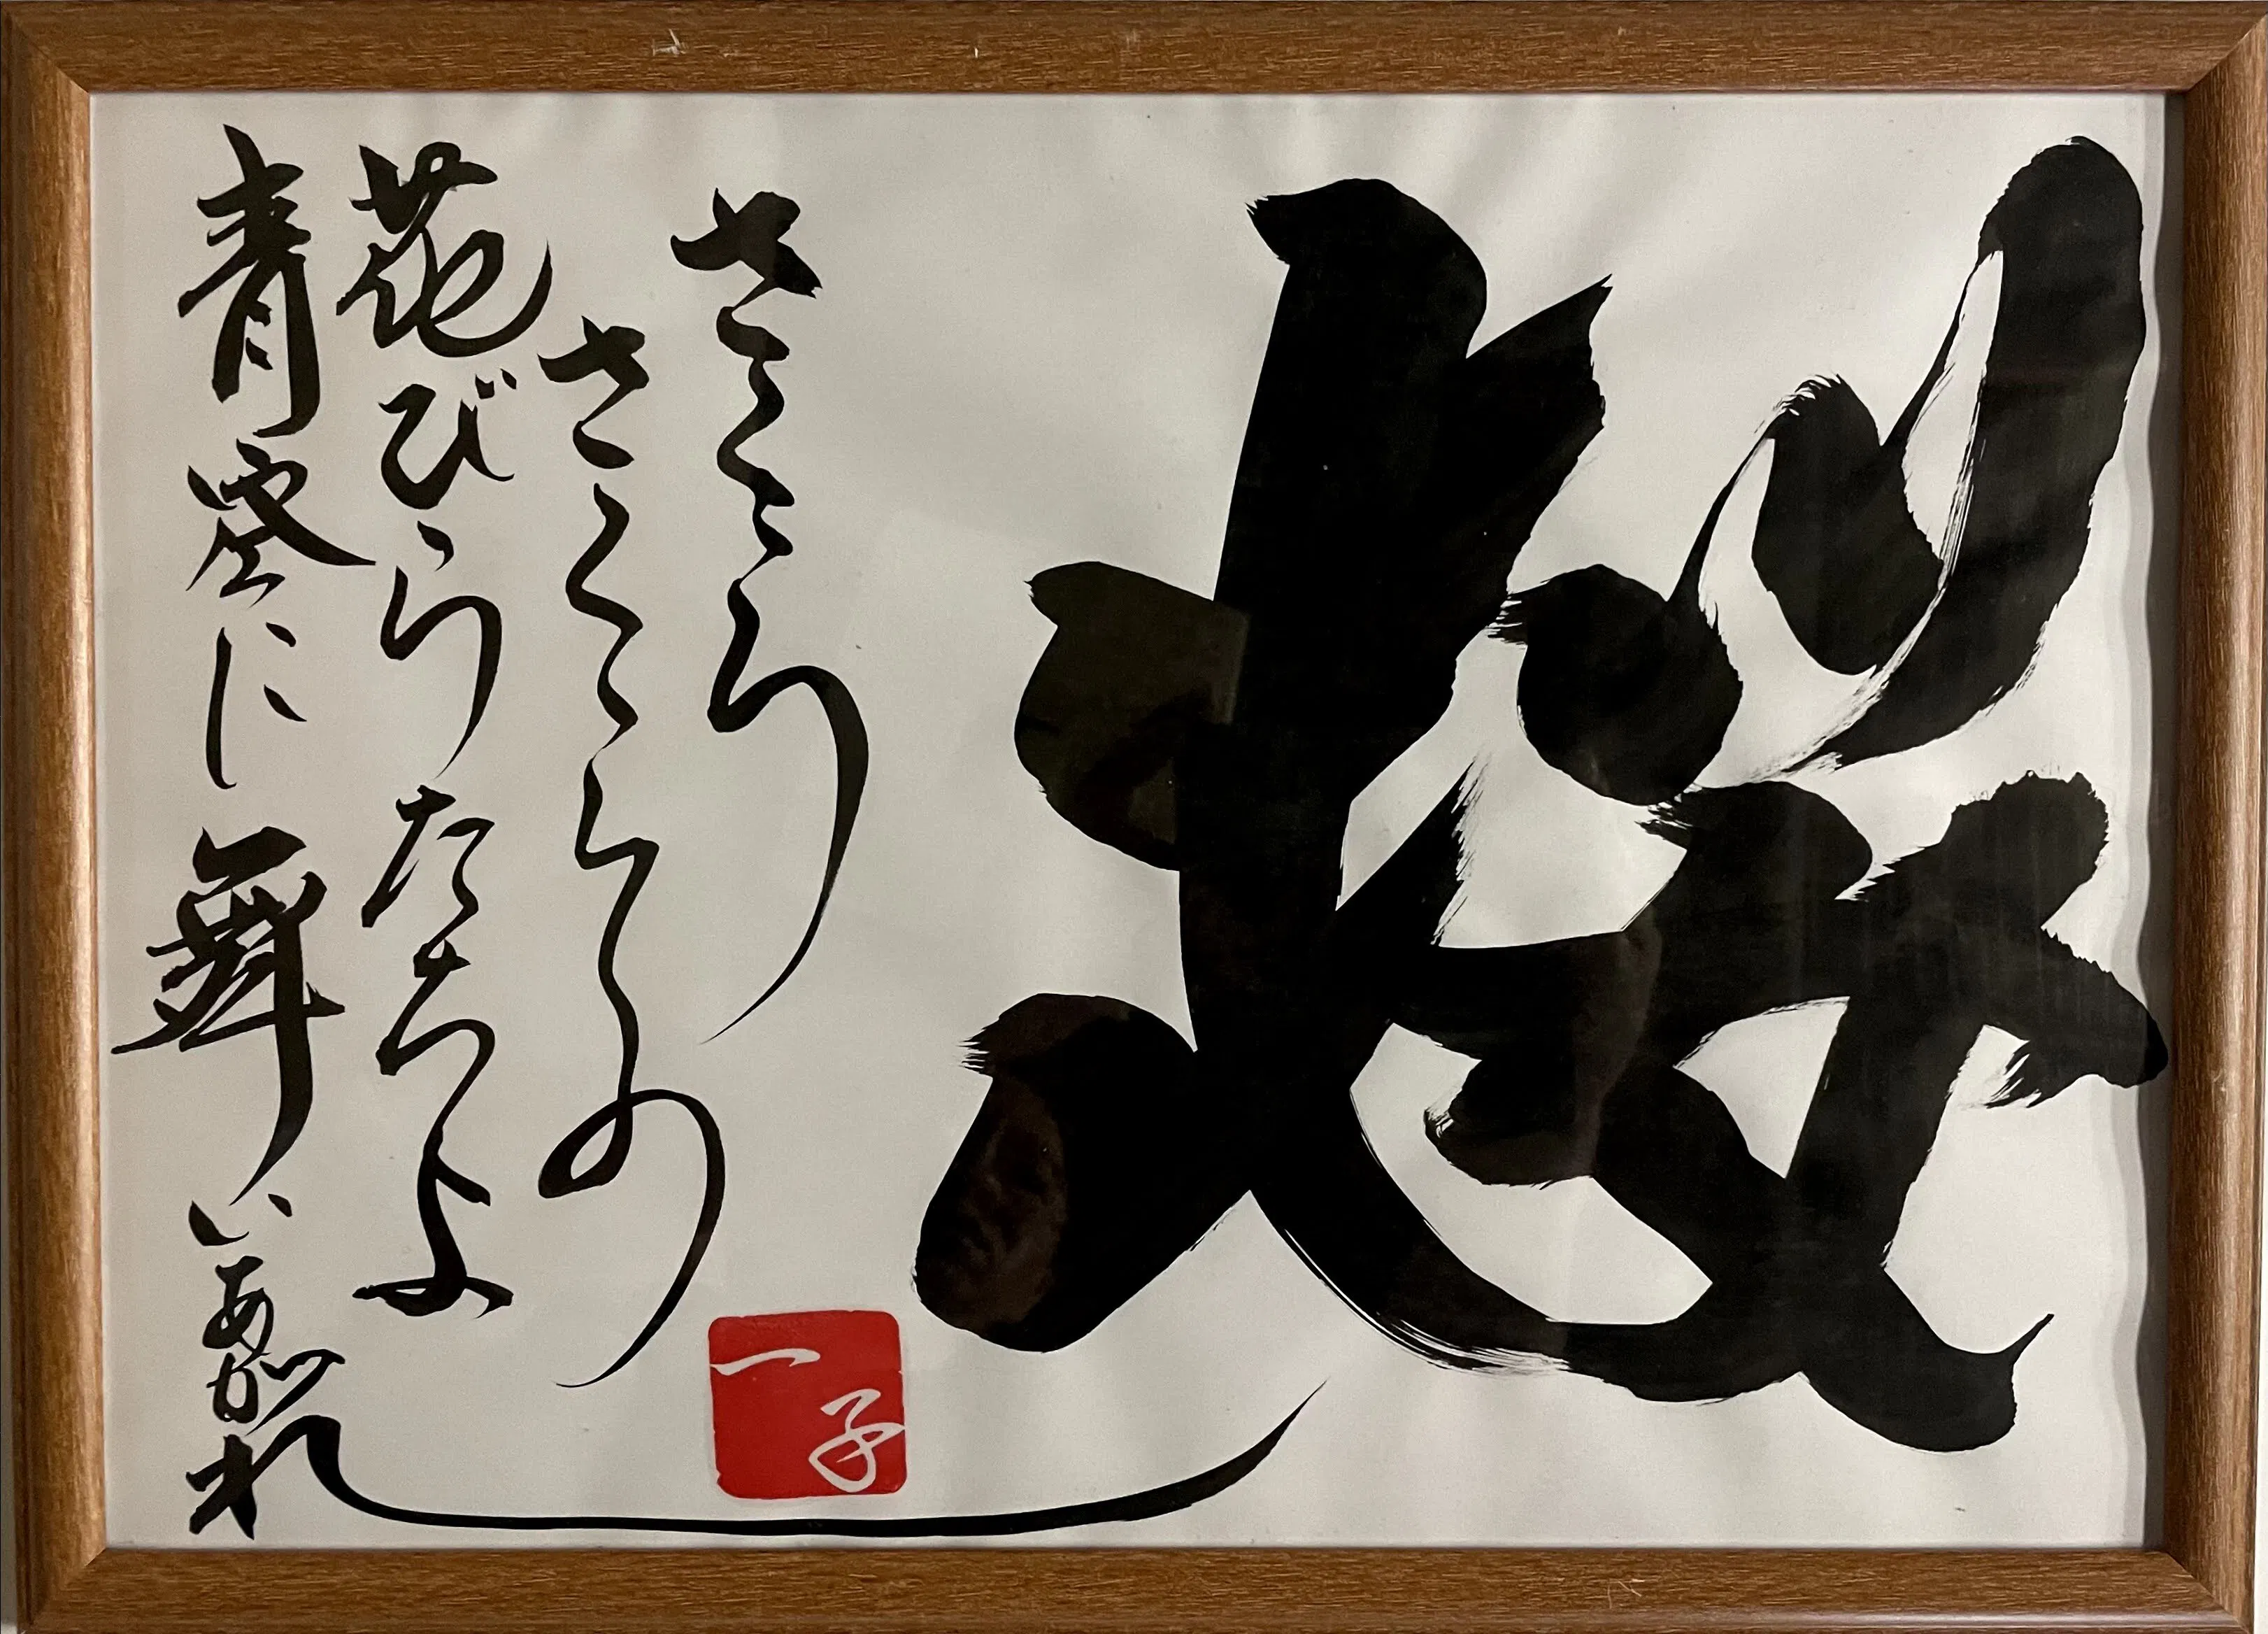 桜
さくら
さくらの
花びらたちよ
青空に舞いあがれ
一子